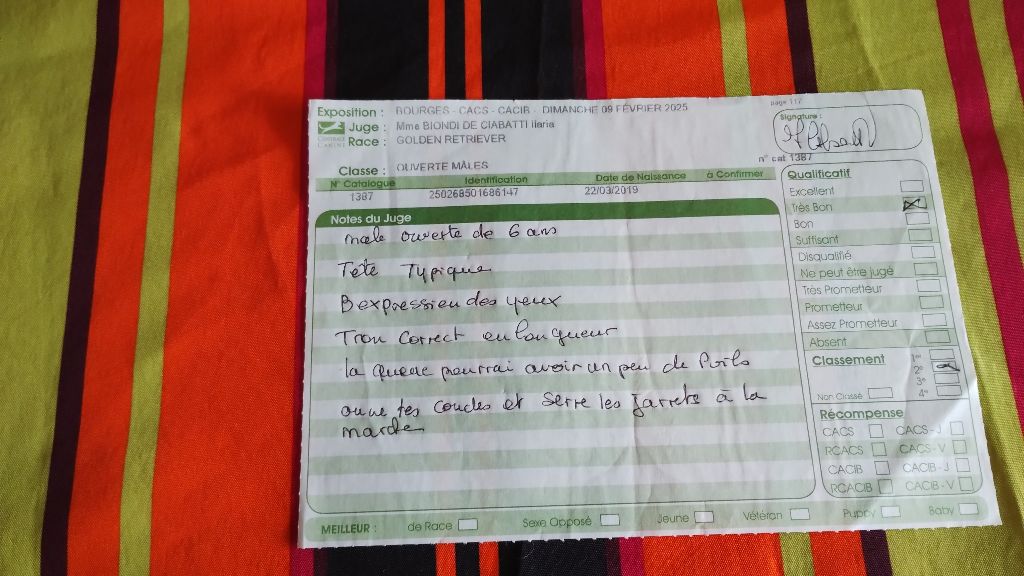 Exposition : BOURGES - CACS - CACIB - DIMANCHE 09 FÉVRIER 2025
page 117
Juge : Mme BIONDI DE CIABATTI Ilaria
Race : GOLDEN RETRIEVER
Signature :
n° cat 1387
Classe : OUVERTE MÂLES
N° Catalogue Identification Date de Naissance à Confirmer
1387 250268501686147 22/03/2019
Notes du Juge
male ouverte de 6 ans
Tête Typique
B expression des yeux
Tron Correct en longueur
la queue pourrai avoir un peu de Poils
ouvre les coudes et serre les Jarrets à la
marche
Qualificatif
Excellent
Très Bon
Bon
Suffisant
Disqualifié
Ne peut être jugé
Très Prometteur
Prometteur
Assez Prometteur
Absent
Classement 1er
2e
3e
Non Classé 4e
Récompense
CACS CACS-J
RCACS CACS-V
CACIB CACIB-J
RCACIB CACIB-V
MEILLEUR : de Race Sexe Opposé Jeune Vétéran Puppy Baby